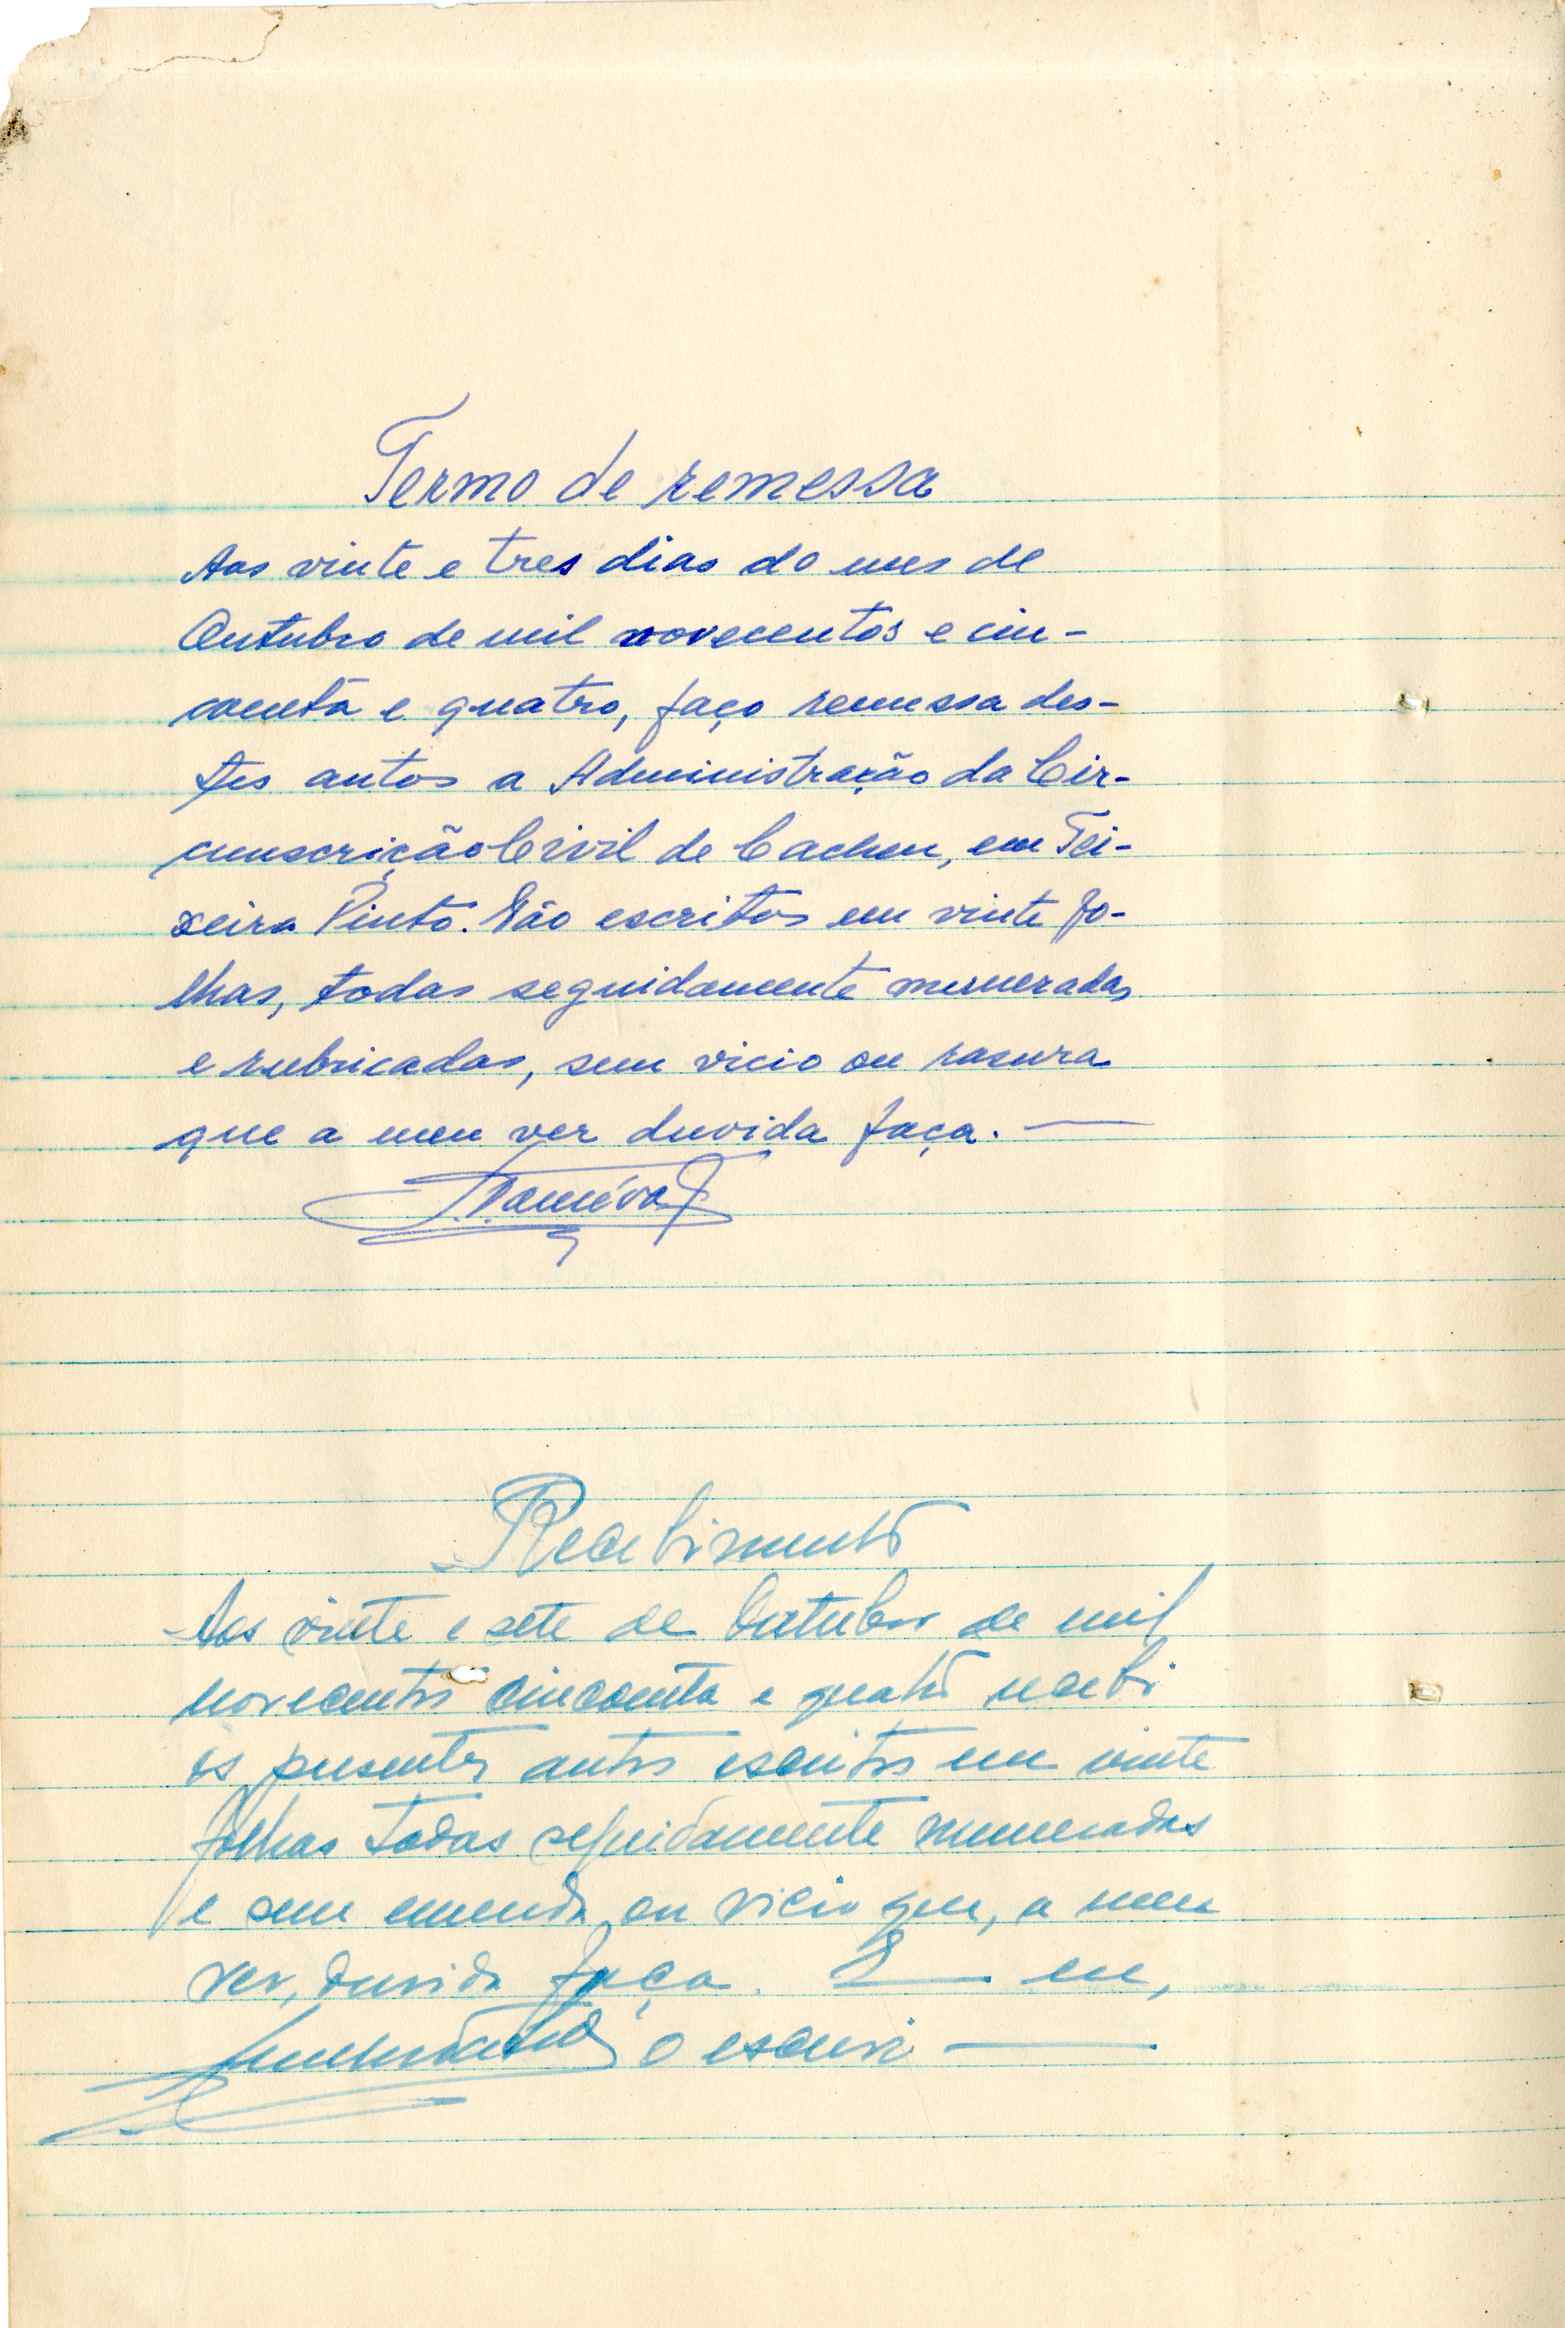 Termo de remessa
Aos vinte e tres dias do mes de
Outubro de mil novecentos e cin-
coenta e quatro, faço remessa des-
tes autos a Administração da Cir-
cunscrição Civil de Cacheu, em Tei-
xeira Pinto. São escritos em vinte fo-
lhas, todas seguidamente numeradas
e rubricadas, sem vicio ou rasura
que a meu ver duvida faça. —
Recebimento
Aos vinte e sete de Outubro de mil
novecentos cincoenta e quatro recebi
os presentes autos escritos em vinte
folhas todas seguidamente numeradas
e sem emenda ou vicio que, a meu
ver, duvida faça. E — eu,
o escrevi —